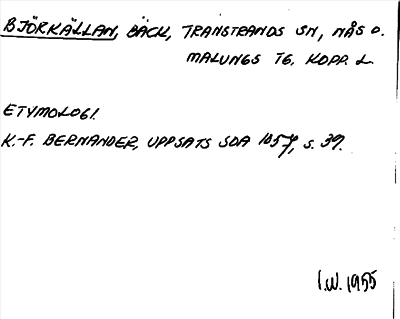 BJÖRKÄLLAN, BÄCK, TRANSTRANDS SN, NÅS O.
MALUNGS TG. KOPP. L.
ETYMOLOGI.
K.-F. BERNANDER, UPPSATS SOA 1057, S. 39.
I.W. 1955